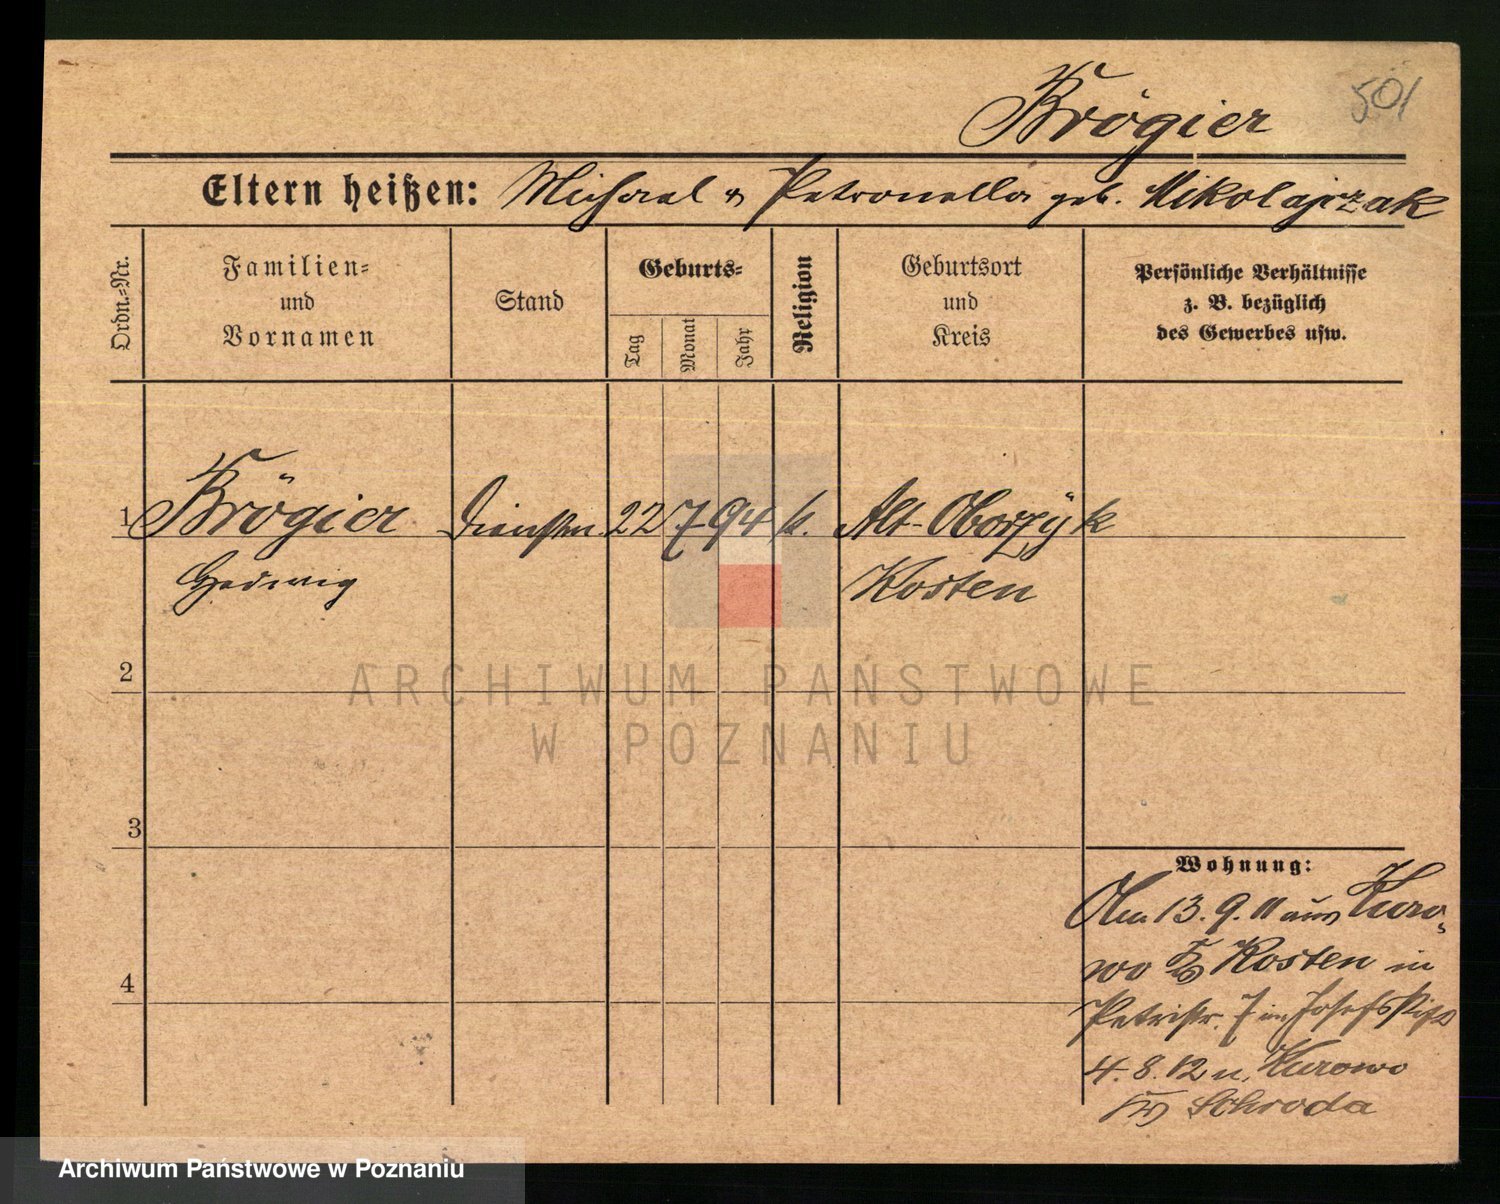 Krögier
501
Eltern heißen: Michael & Petronella geb. Mikolajczak
Ordn.-Nr.
Familien-
und
Vornamen
Stand
Geburts-
Tag
Monat
Jahr
Religion
Geburtsort
und
Kreis
Persönliche Verhältnisse
z. B. bezüglich
des Gewerbes usw.
1 Krögier 22 7 94 k. Alt-Oborzyk
Hedwig Kosten
2
3
4
Wohnung:
Am 13.9.11 aus Kuro-
wo Kr Kosten in
Petristr. 7 im Josefstift
4.8.12 n. Kurowo
Kr Schroda
ARCHIWUM PAŃSTWOWE
W POZNANIU
Archiwum Państwowe w Poznaniu